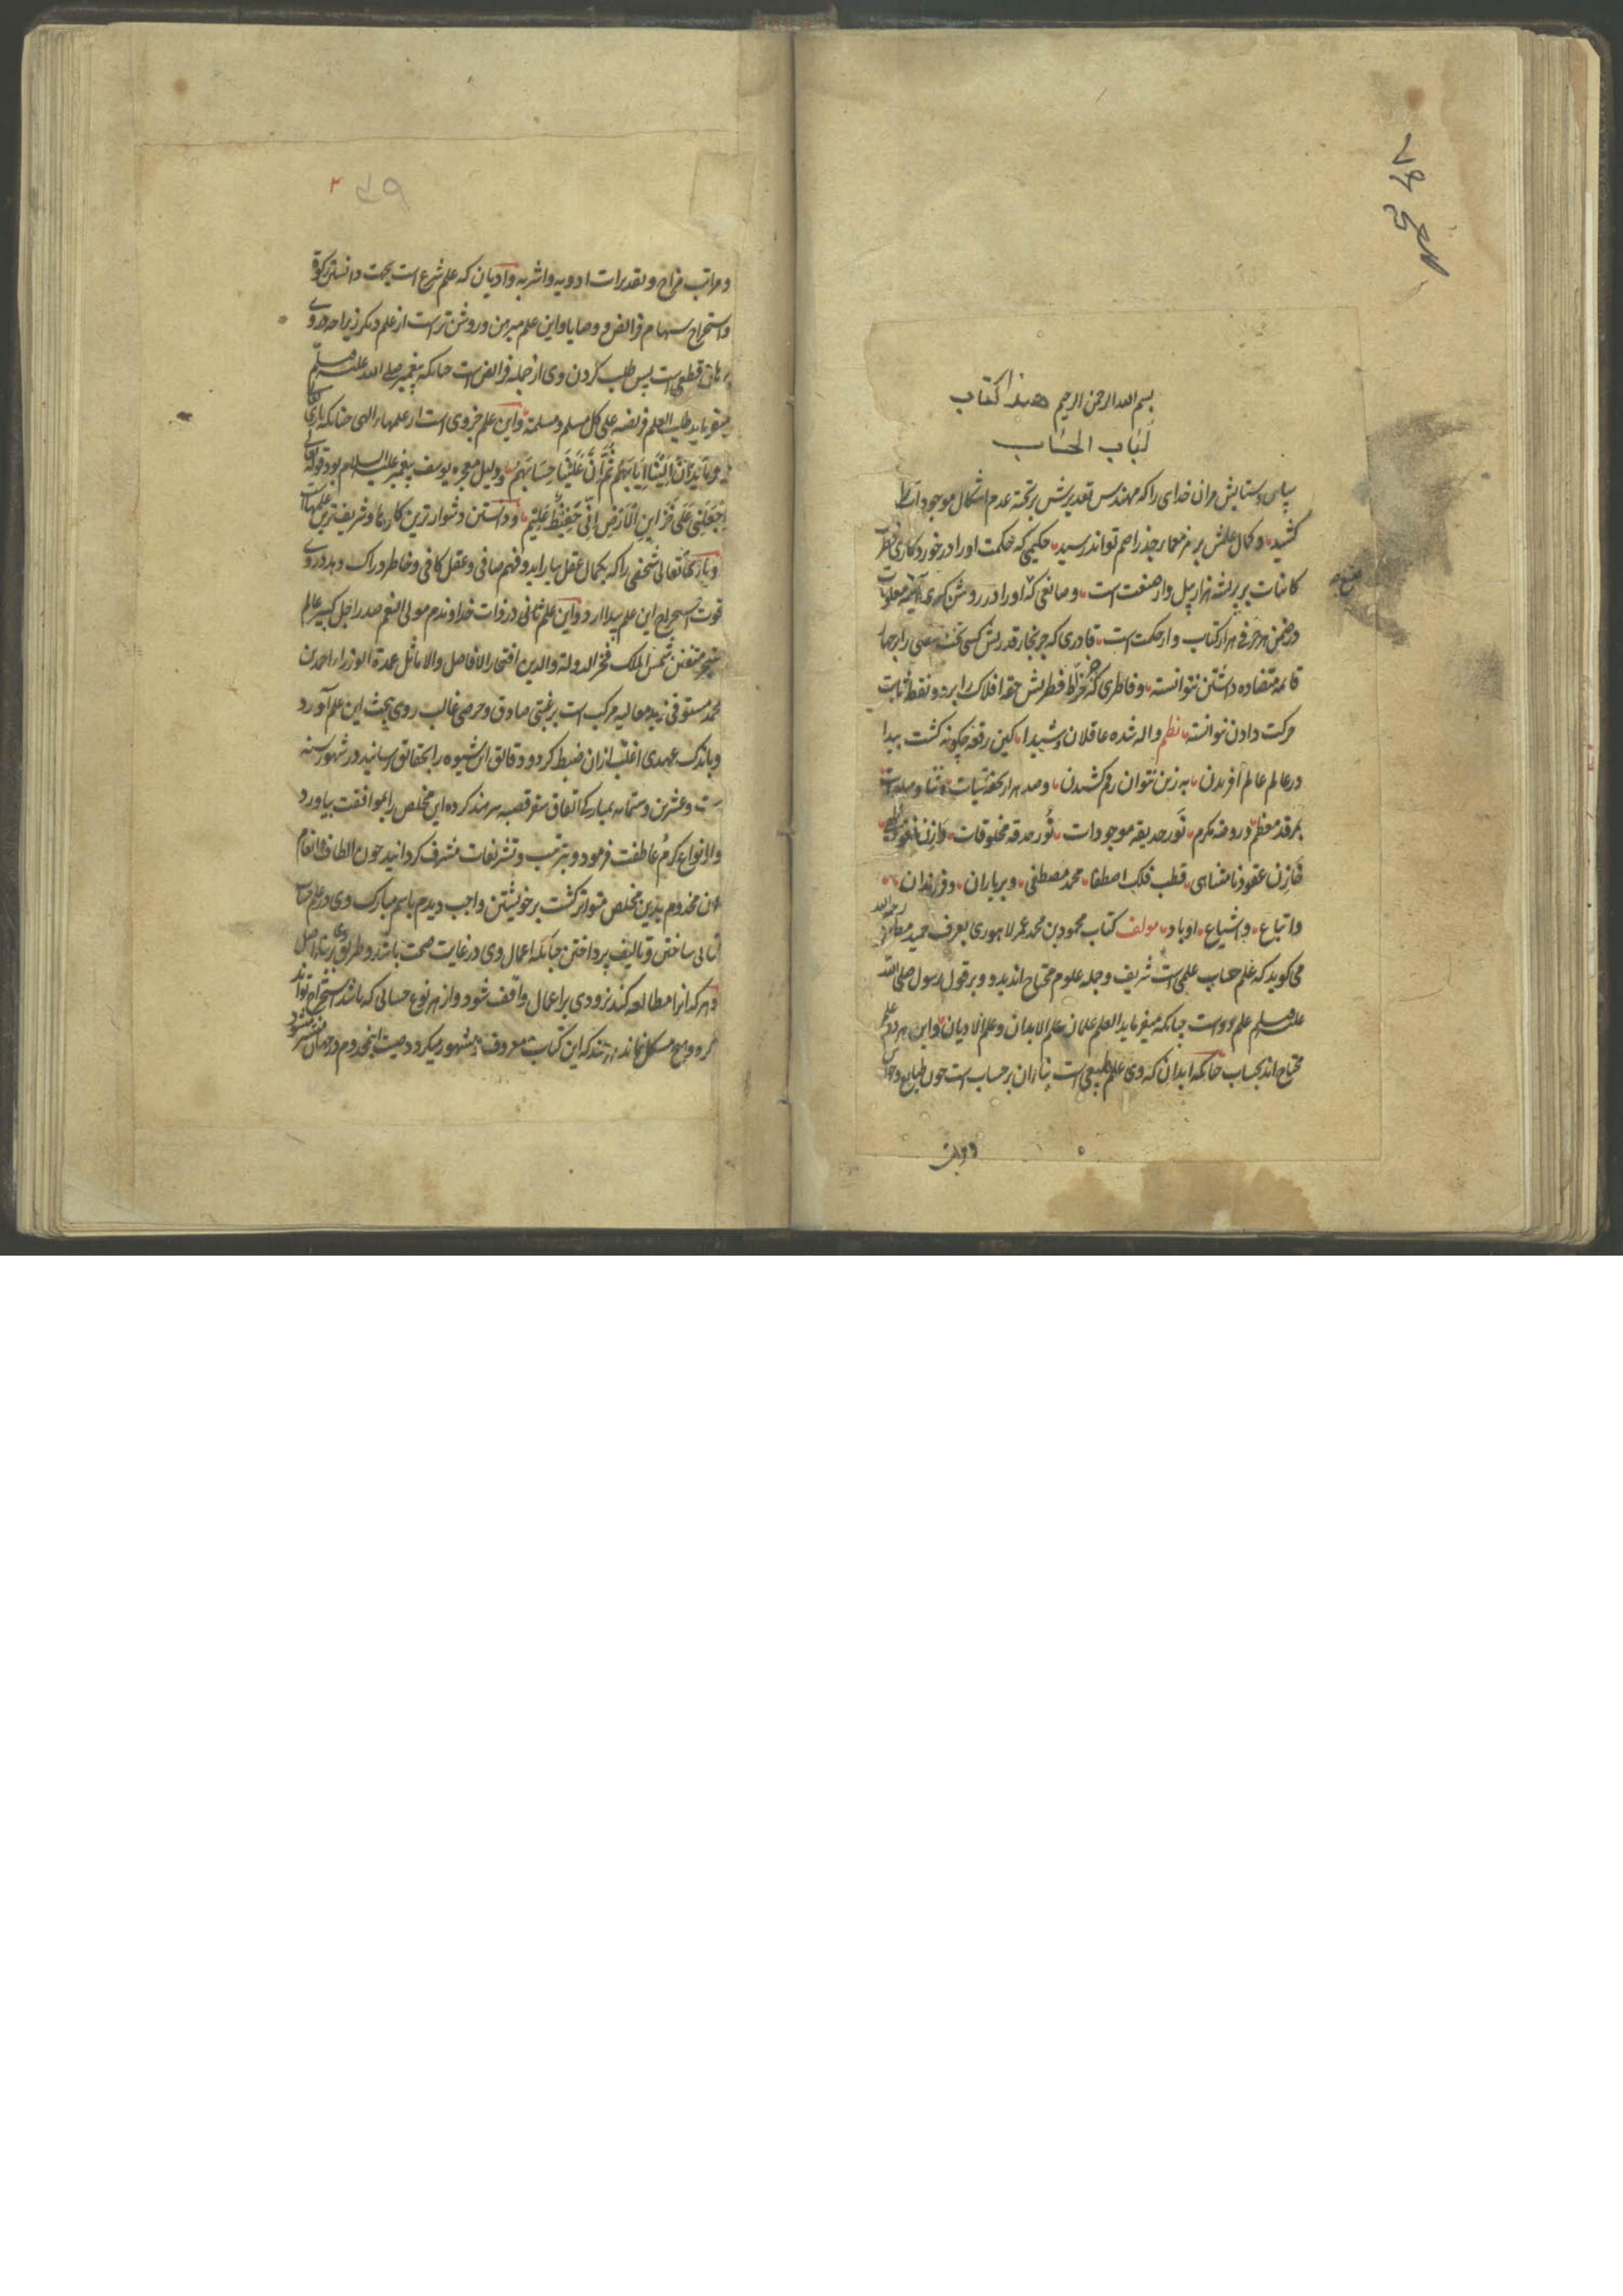 بسم الله الرحمن الرحیم هذا کتاب
لباب الحساب
سپاس و ستایش مران خدای را که مهندس تقدیرش بر تخته عدم اشکال موجودات
کشید و کمال علمش بر سر جذر اصم تواند رسید حکیمی که حکمت او را در خورد کاری
کاینات بر پر پشه هزار پیل وار صنعت است و صانعی که او را در روشن
در ضمن هر حرفی هزار کتاب وار حکمت است قادری که جز نجار قدرتش کسی تخت را بر چهار
قائمه متضاده داشتن نتوانسته و فاطری که جز خراط فطرتش حقه افلاک را بر دو نقطه ثابت
حرکت دادن نتوانسته نظم واله شده عاقلان و شیدا کین رقعه چگونه گشت پیدا
در عالم عالم افریدن به زین نتوان رقم کشیدن و صد هزار تحفه تحیات و ثنا و صلوات
بمرقد معظم و روضه مکرم نور حدیقه موجودات نور حدقه مخلوقات وازن
خازن عقود نامتناهی قطب فلک اصطفا محمد مصطفی و بر یاران و فرزندان
و اتباع و اشیاع او باد مولف کتاب محمود بن محمد عمر لاهوری بعرف حمید رحمه الله
می گوید که علم حساب علمی است شریف و جمله علوم محتاج اند بدو و بر قول رسول صلی الله
علیه و سلم علم دو است چنانکه میفرماید العلم علمان علم الابدان و علم الادیان و این هر دو علم
محتاج اند بحساب چنانکه ابدان که وی علم طبیعی است بناء آن بر حساب است چون طبایع و
و مراتب
و مراتب مزاج و تقدیرات ادویه و اشربه و ادیان که علم شرع است بجهت دانستن زکوة
و استخراج سهام فرائض و وصایا و این علم مبرهن و روشن تر است از علم دیگر زیرا
قطعی است پس طلب کردن وی از جمله فرائض است چنانکه پیغمبر صلی الله علیه و سلم
میفرماید طلب العلم فریضه علی کل مسلم و مسلمة و این علم جزوی است از علمهاء الهی چنانکه باری تعالی
اِنَّ اِلَیْنَا اِیَابَهُمْ ثُمَّ اِنَّ عَلَیْنَا حِسَابَهُمْ و دلیل معجزه یوسف پیغمبر علیه السلام بود قوله تعالی
اِجْعَلْنِی عَلَی خَزَاینِ الْاَرْضِ اِنّی حَفِیْظٌ عَلِیْم و دانستن دشوارترین کارها و شریف ترین علمهاست
و باری تعالی شخصی را که بکمال عقل بیاراید و فهم صافی و عقل کافی و خاطر دراک و
قوت استخراج این علم پیدا ارد و این علم ثانی در ذات خداوندم مولی النعم صدر اجل کبیر عالم
متبحر متفنن شمس الملک فخر الدولة والدین افتخار الافاضل والاماثل عمدة الوزراء احمد بن
محمد مستوفی زید معالیه مرکب است برغبتی صادق و حرصی غالب روی ببحث این علم آورد
و باندک عهدی اغلب ازان ضبط کرد و دقایق این شیوه را بحقایق رسانید در شهور سنه
ست و عشرین و ستمائه بمبارکی اتفاق سفر قصبه سرهند کرده این مخلص را بموافقت بیاورد
و انواع کرم و عاطفت فرمود و بترتیب و تشریفات مشرف گردانید چون الطاف و انعام
آن مخدوم بدین مخلص متواتر گشت بر خویشتن واجب دیدم باسم مبارک وی در علم حساب
کتابی ساختن و تالیف پرداختن چنانکه اعمال وی در غایت صحت باشد و طریق
و هر که انرا مطالعه کند بزودی بر اعمال واقف شود و از هر نوع حسابی که باشد استخراج تواند
کرد و هیچ مشکل نماند هر چند که این کتاب معروف و مشهور میگردد صیت این مخدوم در جهان منتشر شود